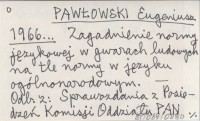 PAWŁOWSKI Eugeniusz
1966... Zagadnienie normy
językowej w gwarach ludowych
na tle normy w języku
ogólnonarodowym. —
Odb. z: Sprawozdania z Posie-
dzeń Komisji Oddziału PAN